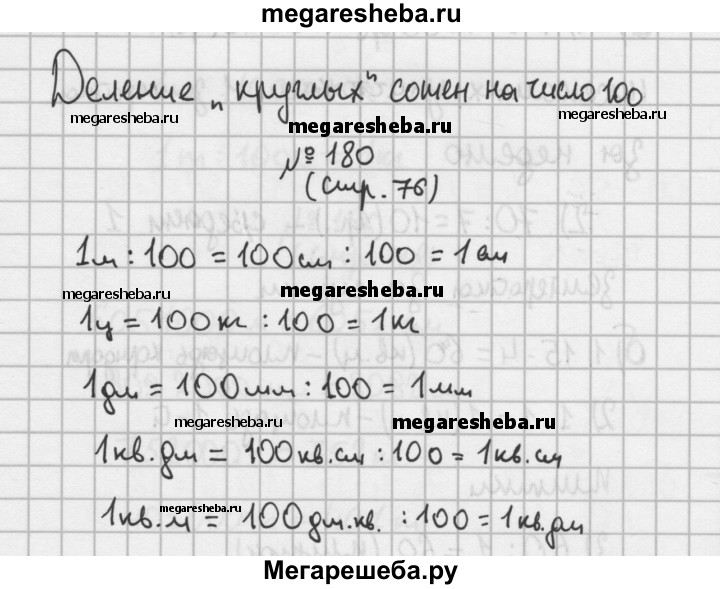 megaresheba.ru
Деление „круглых" сотен на число 100
megaresheba.ru
megaresheba.ru
megaresheba.ru
№ 180
(стр. 76)
1м : 100 = 100см : 100 = 1см
megaresheba.ru
megaresheba.ru
1ц = 100кг : 100 = 1кг
1дм = 100мм : 100 = 1мм
megaresheba.ru
megaresheba.ru
1кв.дм = 100кв.см : 100 = 1кв.см
megaresheba.ru
megaresheba.ru
1кв.м = 100дм.кв. : 100 = 1кв.дм
Мегарешеба.ру